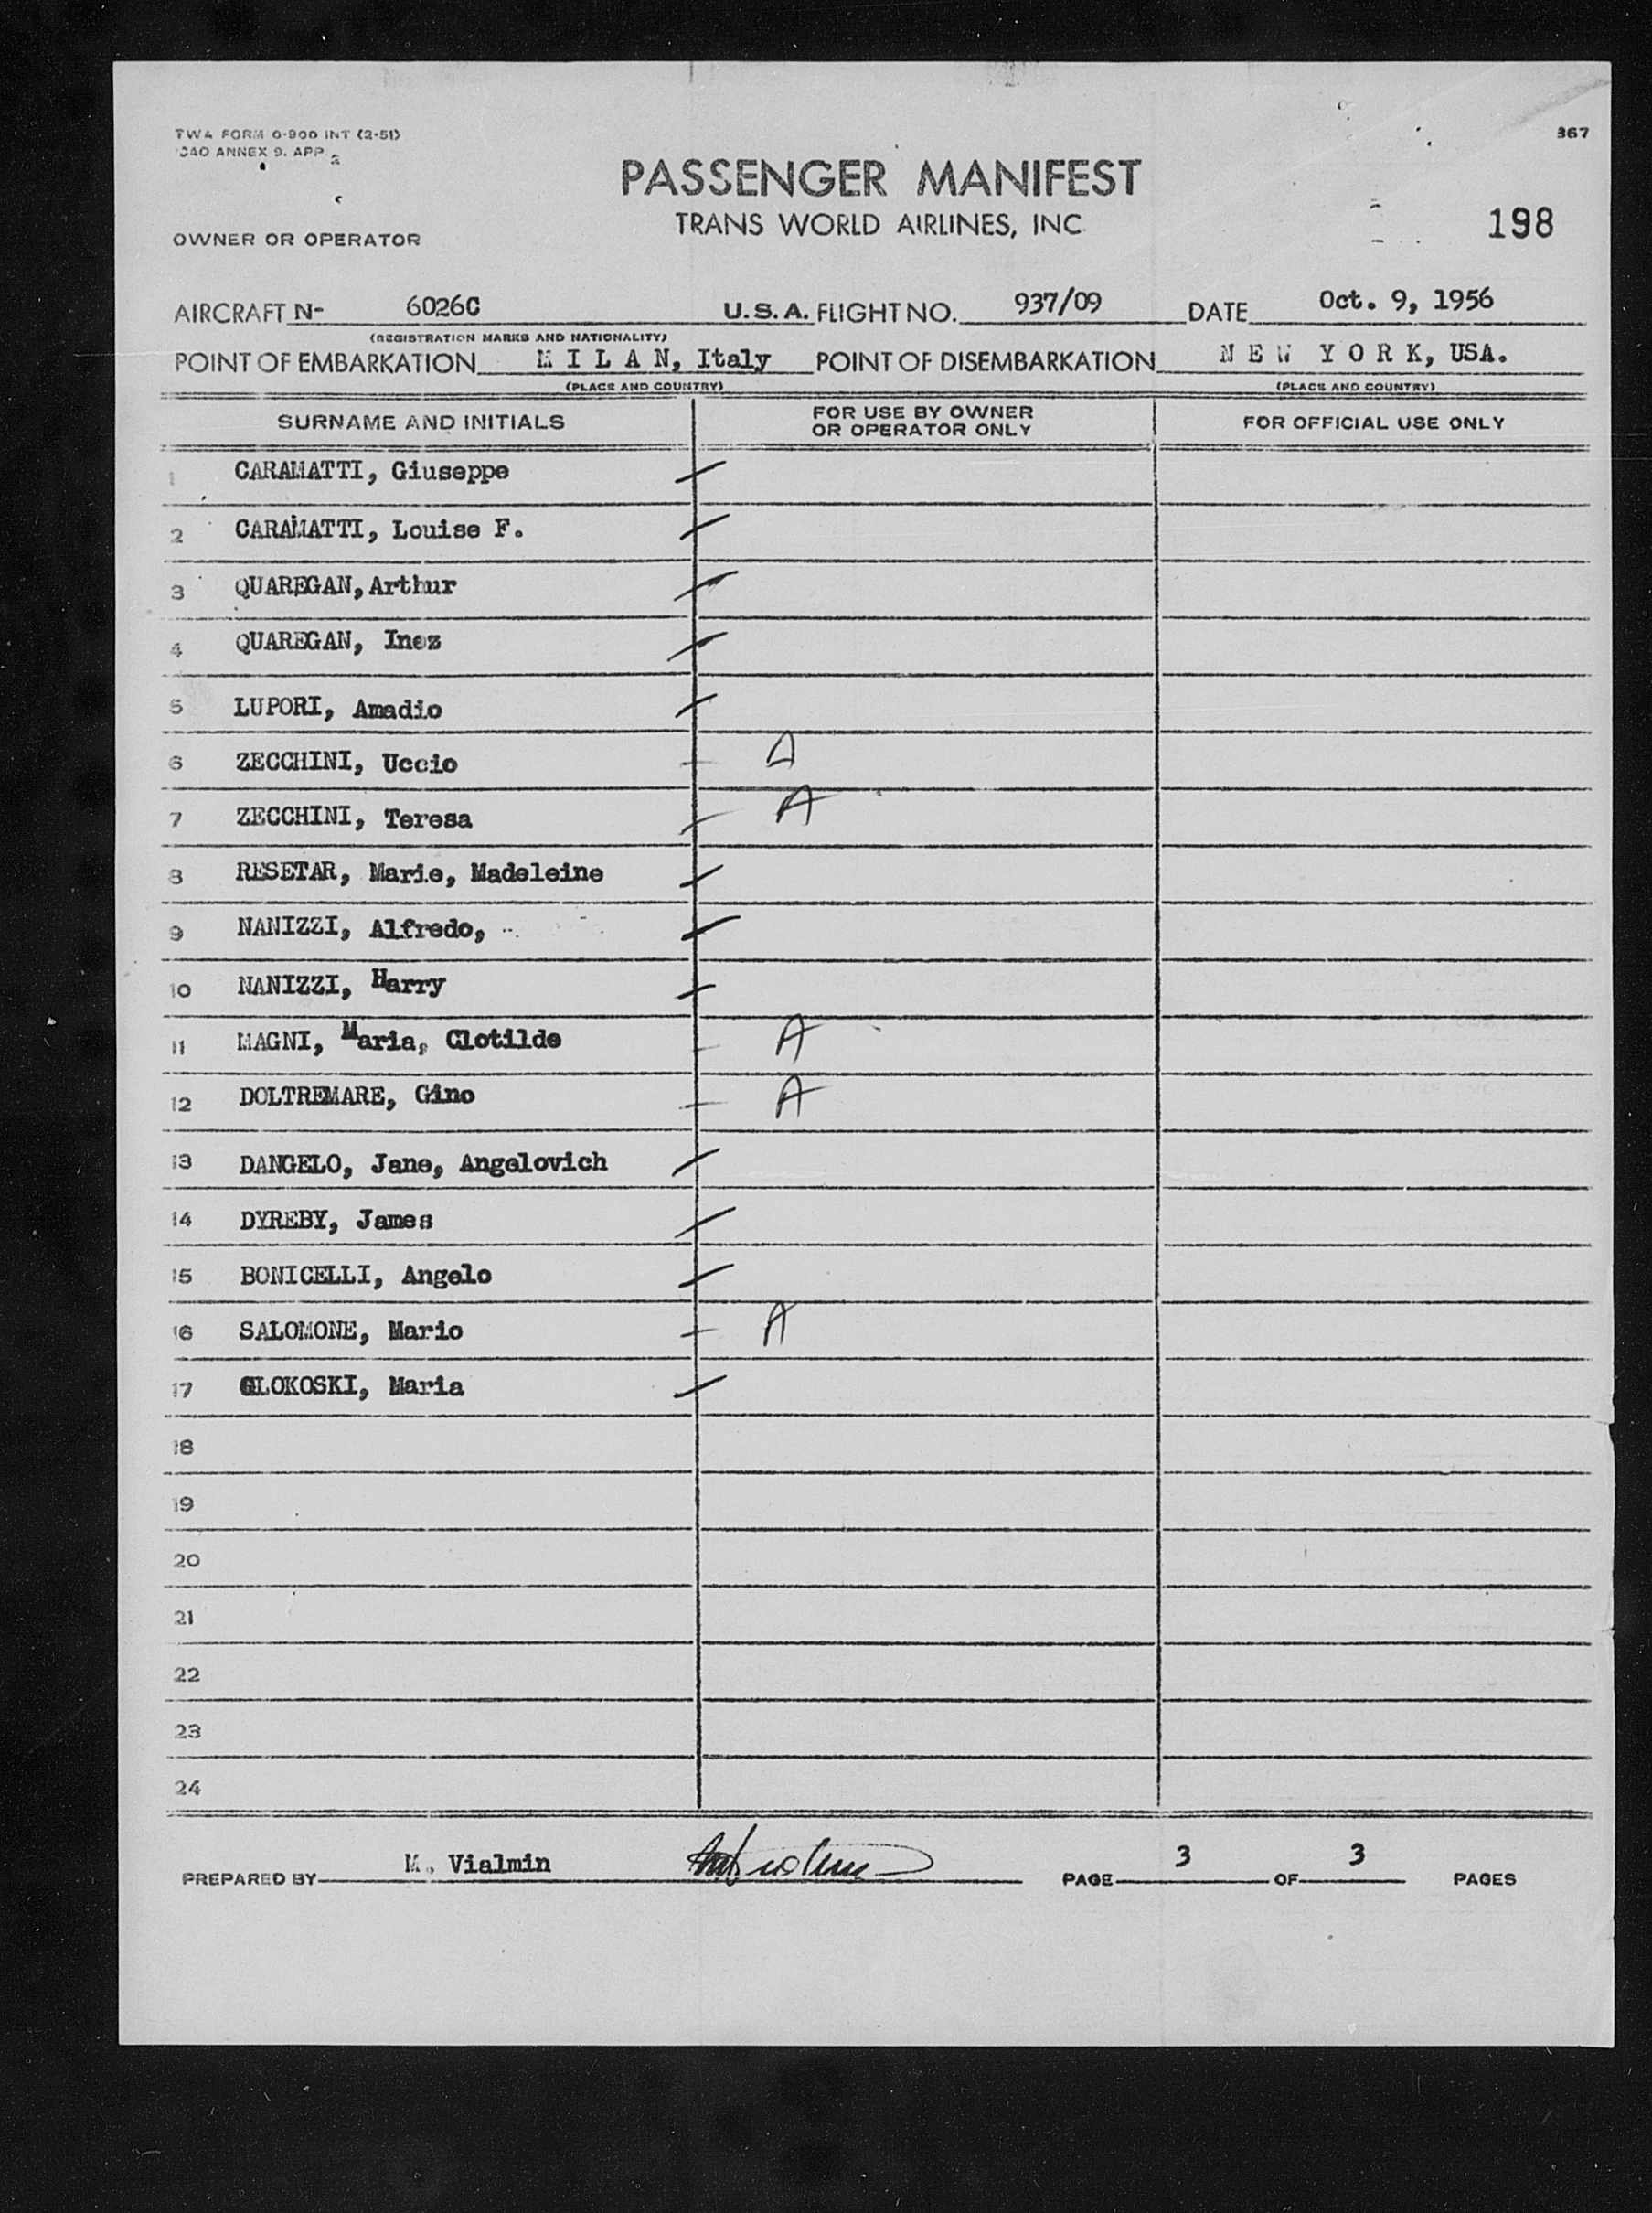 TWA FORM 0-900 INT (2-51)
ICAO ANNEX 9. APP 2
367
PASSENGER MANIFEST
TRANS WORLD AIRLINES, INC.
198
OWNER OR OPERATOR
AIRCRAFT N- 6026C U.S.A. FLIGHT NO. 937/09 DATE Oct. 9, 1956
(REGISTRATION MARKS AND NATIONALITY)
POINT OF EMBARKATION M I L A N, Italy POINT OF DISEMBARKATION N E W Y O R K, USA.
(PLACE AND COUNTRY) (PLACE AND COUNTRY)
SURNAME AND INITIALS FOR USE BY OWNER OR OPERATOR ONLY FOR OFFICIAL USE ONLY
1 CARAMATTI, Giuseppe
2 CARAMATTI, Louise F.
3 QUAREGAN, Arthur
4 QUAREGAN, Inez
5 LUPORI, Amadio
6 ZECCHINI, Uccio A
7 ZECCHINI, Teresa A
8 RESETAR, Marie, Madeleine
9 NANIZZI, Alfredo,
10 NANIZZI, Harry
11 MAGNI, Maria, Clotilde A
12 DOLTREMARE, Gino A
13 DANGELO, Jane, Angelovich
14 DYREBY, James
15 BONICELLI, Angelo
16 SALOMONE, Mario A
17 GLOKOSKI, Maria
18
19
20
21
22
23
24
PREPARED BY M. Vialmin PAGE 3 OF 3 PAGES